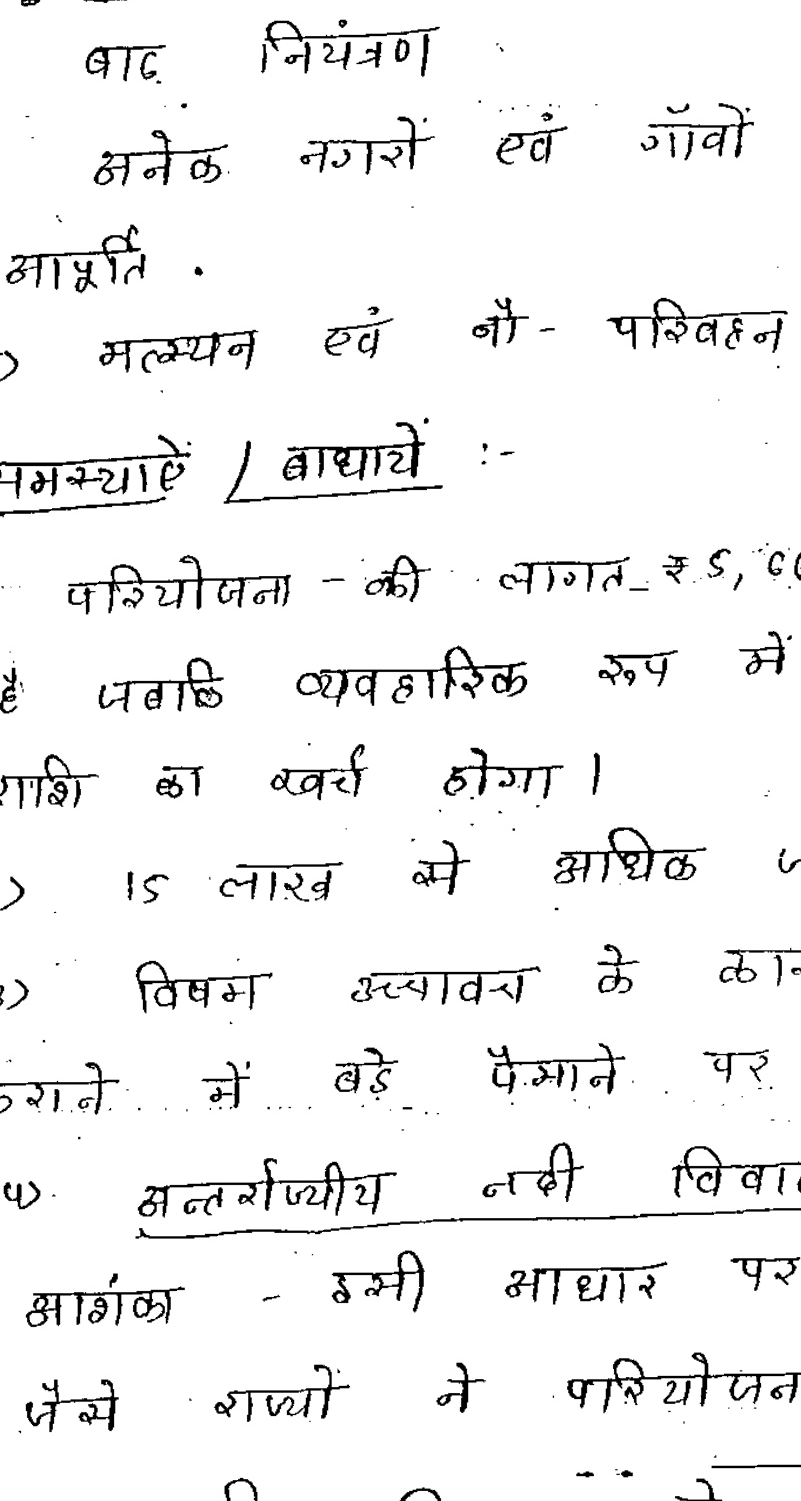 बाढ़ नियंत्रण
अनेक नगरों एवं गाँवों
आपूर्ति .
मत्स्यन एवं नौ - परिवहन
समस्याऐं / बाधायें :-
परियोजना - की लागत ₹ 5,
है जबकि व्यवहारिक रूप में
राशि का खर्च होगा ।
15 लाख से अधिक
विषम उच्चावच के
में बड़े पैमाने पर
अन्तर्राज्यीय नदी
आशंका - इसी आधार पर
जैसे राज्यों ने